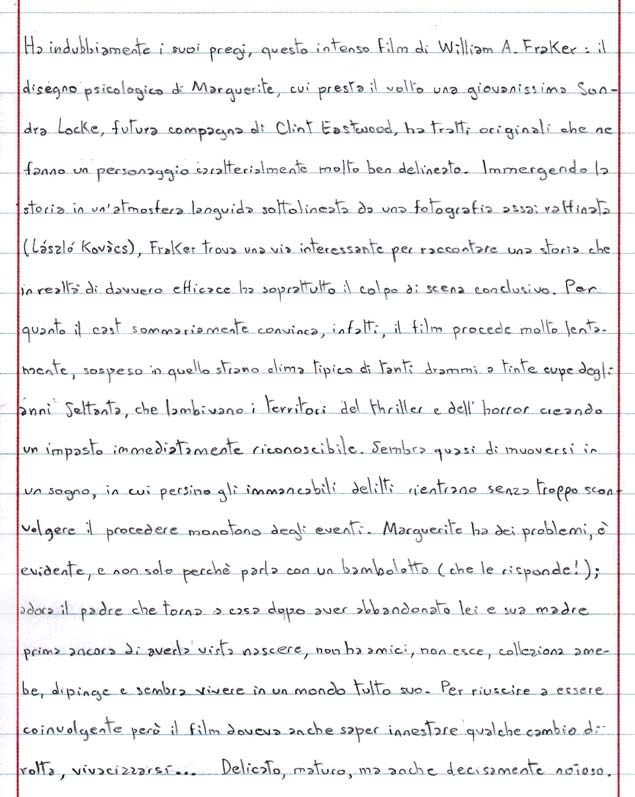 Ha indubbiamente i suoi pregi, questo intenso film di William A. Fraker: il
disegno psicologico di Marguerite, cui presta il volto una giovanissima Son-
dra Locke, futura compagna di Clint Eastwood, ha tratti originali che ne
fanno un personaggio caratterialmente molto ben delineato. Immergendo la
storia in un'atmosfera languida sottolineata da una fotografia assai raffinata
(László Kovàcs), Fraker trova una via interessante per raccontare una storia che
in realtà di davvero efficace ha soprattutto il colpo di scena conclusivo. Per
quanto il cast sommariamente convinca, infatti, il film procede molto lenta-
mente, sospeso in quello strano clima tipico di tanti drammi a tinte cupe degli
anni Settanta, che lambivano i territori del thriller e dell'horror creando
un impasto immediatamente riconoscibile. Sembra quasi di muoversi in
un sogno, in cui persino gli immancabili delitti rientrano senza troppo scon-
volgere il procedere monotono degli eventi. Marguerite ha dei problemi, è
evidente, e non solo perchè parla con un bambolotto (che le risponde!);
adora il padre che torna a casa dopo aver abbandonato lei e sua madre
prima ancora di averla vista nascere, non ha amici, non esce, colleziona ame-
be, dipinge e sembra vivere in un mondo tutto suo. Per riuscire a essere
coinvolgente però il film doveva anche saper innestare qualche cambio di
rotta, vivacizzarsi... Delicato, maturo, ma anche decisamente noioso.